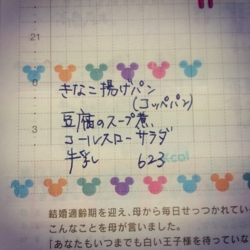 21
0
3
きなこ揚げパン
(コッペパン)
豆腐のスープ煮
コールスローサラダ
牛乳 623
kcal
結婚適齢期を迎え、母から毎日せっつかれてい
こんなことを母が言いました。
「あなたもいつまでも白い王子様を待っていな